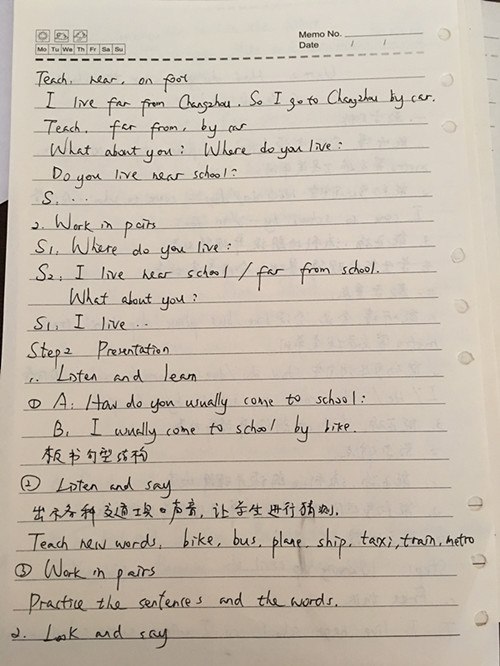 Memo No.
Mo Tu We Th Fr Sa Su
Date / /
Teach. near, on foot
I live far from Changzhou. So I go to Changzhou by car.
Teach. far from, by car
What about you? Where do you live?
Do you live near school?
S. ...
2. Work in pairs
S1. Where do you live?
S2. I live near school / far from school.
What about you?
S1. I live ..
Step2 Presentation
1. Listen and learn
① A: How do you usually come to school?
B. I usually come to school by bike.
板书句型结构
② Listen and say
出示各种交通工具的声音, 让学生进行猜测.
Teach new words. bike, bus, plane, ship, taxi, train, metro
③ Work in pairs
Practice the sentences and the words.
2. Look and say